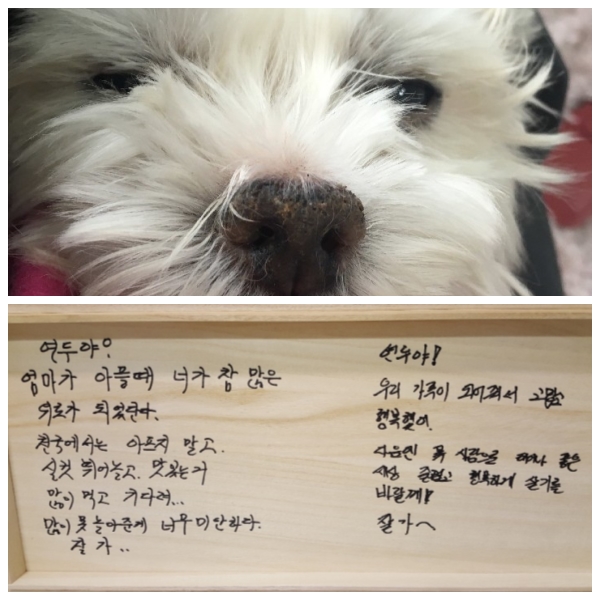 연두야?
엄마가 아플때 너가 참 많은
위로가 되었단다.
천국에서는 아프지 말고.
실컷 뛰어놀고. 맛있는거
많이 먹고 기다려...
많이 못 놀아준게 너무 미안하다.
잘 가..
연두야!
우리 가족이 되어줘서 고맙고
행복했어.
다음엔 꼭 사람으로 태어나 좋은
세상 행복하게 살기를
바랄께!
잘가~